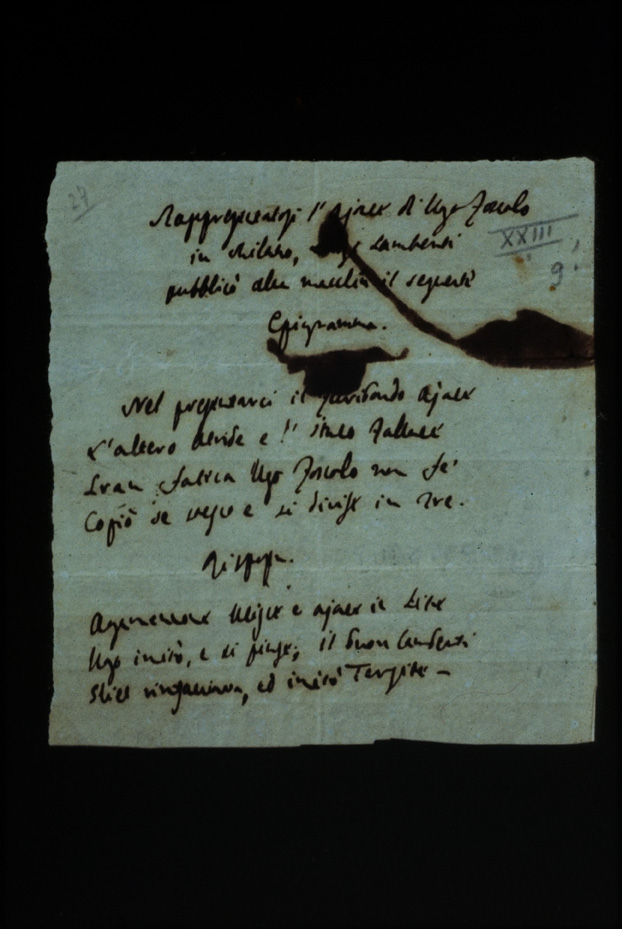 27
Rappresentossi l'Ajace di Ugo Foscolo
XXIII
9
in Milano, Lamberti
pubblicò alla macchia il seguente
Epigramma.
Nel presentarci il furibondo Ajace
L'altero Atride e l' Itaco fallace
Gran fatica Ugo Foscolo non fe'
Copiò se stesso e si divise in tre.
Risposta.
Agamennone Ulisse e Ajace in
Ugo imitò, e si pinse; il buon Lamberti
ed imitò Tersite —